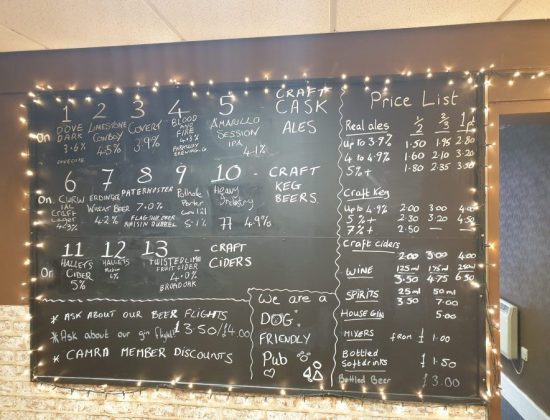 1 2 3 4 5 CRAFT CASK ALES
On
DOVE DARK 3.6%
LIMESTONE COWBOY 4.5%
COVERT 3.9%
BLOOD AND FIRE
AMARILLO SESSION IPA 4.1%
6 7 8 9 10 - CRAFT KEG BEERS.
On
CWRW IAL CRAFT LAGER 4.9%
ERDINGER WHEAT BEER 4.2%
PATERNOSTER 7.0%
FLAGSHIP BEER RAISIN DUBBEL
Pothole Porter 5.1%
Heavy Industry
77 4.9%
11 12 13 - CRAFT CIDERS
On
HALLETS CIDER 5%
HALLETS
4%
TWISTED LIME FRUIT CIDER 4.0%
BROADOAK
* ASK ABOUT OUR BEER FLIGHTS
* Ask about our gin flights! £3.50/£4.00
* CAMRA MEMBER DISCOUNTS
We are a
DOG
FRIENDLY
Pub
Price List
Real ales 1/2 2/3 1pt
Up to 3.9% 1.50 1.95 2.80
4 to 4.9% 1.60 2.10 3.20
5%+ 1.80 2.35 3.50
Craft Keg
Up to 4.9% 2.00 3.00 4.00
5%+ 2.30 3.20 4.50
7%+ 2.50 - -
Craft ciders
2.00 3.00 4.00
WINE 125ml 175ml 250ml
3.50 4.75 6.50
SPIRITS 25ml 50ml
3.50 7.00
HOUSE GIN 5.00
MIXERS from £1.00
Bottled Soft drinks £1.50
Bottled Beer £3.00